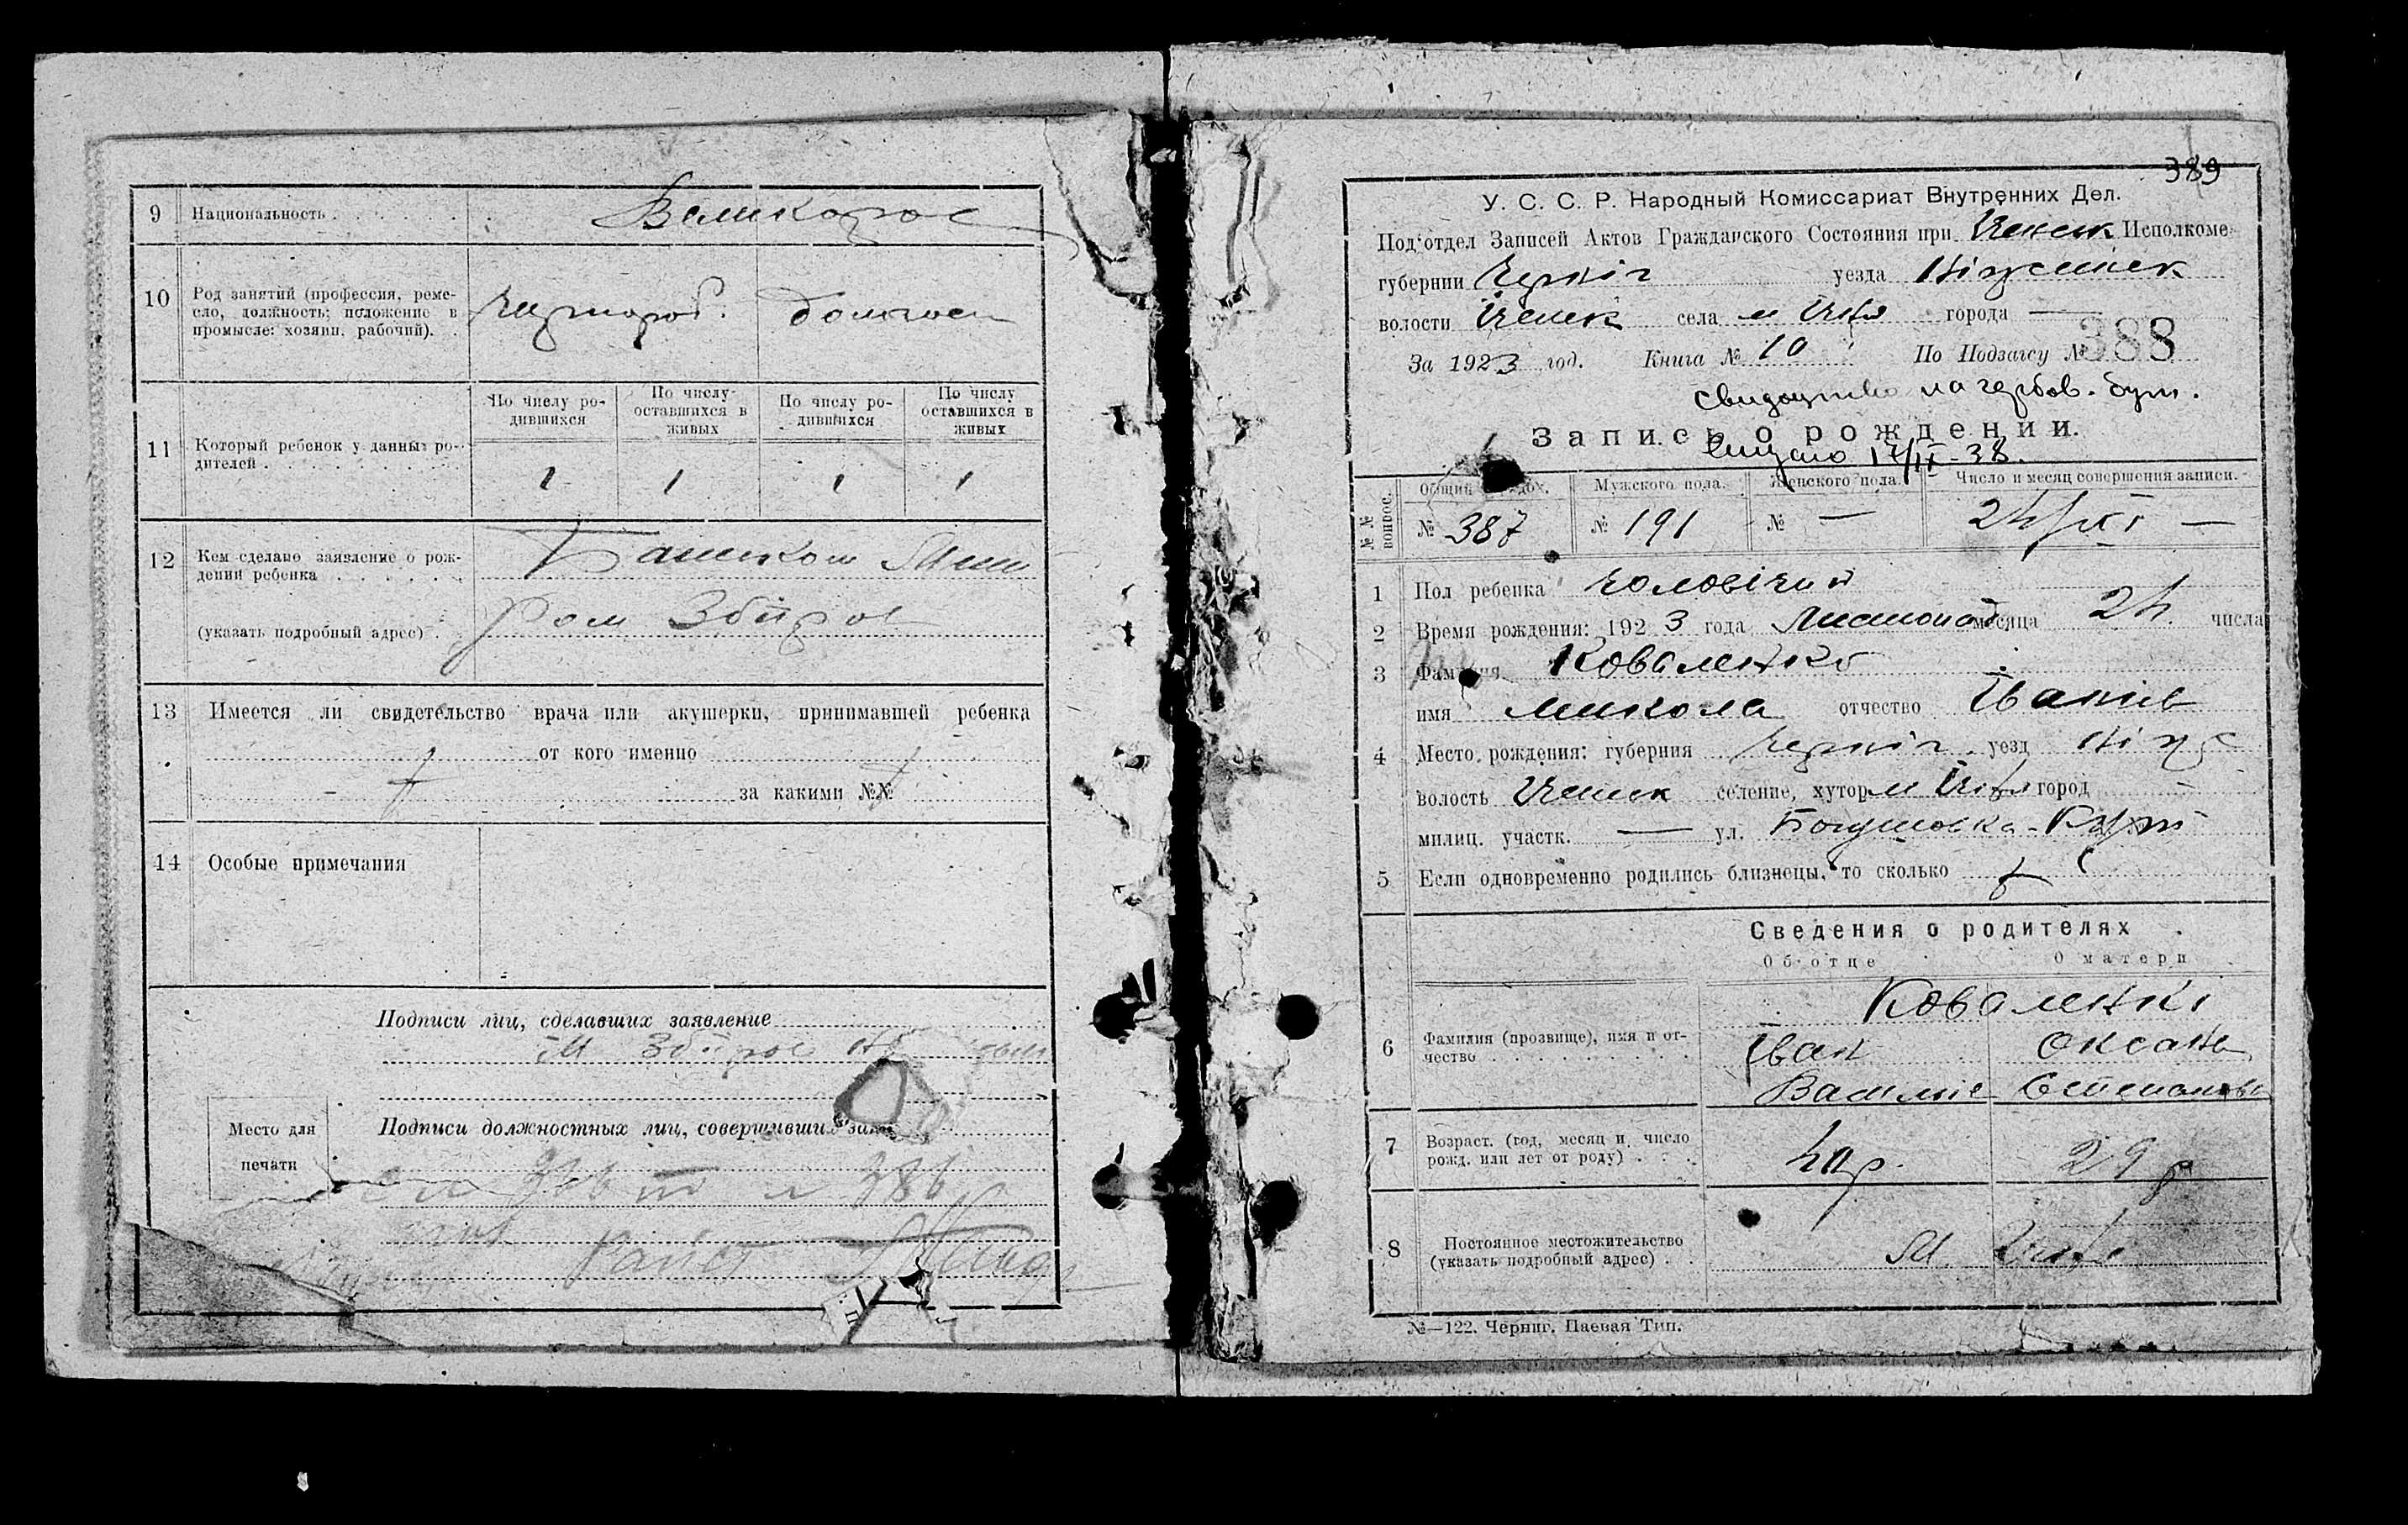 9 Национальность . . . . . . . Великорос
10 Род занятий (профессия, реме-
сло, должность; положение в
промысле: хозяин, рабочий). . домгосп
11 Который ребенок у данных ро-
дителей . . . . . . . . . .
По числу ро-
дившихся
По числу
оставшихся в
живых
По числу ро-
дившихся
По числу
оставшихся в
живых
1 1 1 1
12 Кем сделано заявление о рож-
дении ребенка . . . . . . Батьком
(указать подробный адрес) .
13 Имеется ли свидетельство врача или акушерки, принимавшей ребенка
от кого именно
за какими №№
14 Особые примечания
Подписи лиц, сделавших заявление
Место для
печати
Подписи должностных лиц, совершивших
389
У. С. С. Р. Народный Комиссариат Внутренних Дел.
Под'отдел Записей Актов Гражданского Состояния при Ичнськ Исполкоме
губернии Черніг уезда Ніженськ
волости Ічнськ села м Ічня города —
За 1923 год. Книга № 10 По Подзагсу № 388
свидоцтво на гербов. бум.
Запись о рождении.
видано 17/IX-38.
№№ вопрос.
Общий порядок. Мужского пола. Женского пола. Число и месяц совершения записи.
№ 387 № 191 № — 24/XI —
1 Пол ребенка чоловічий
2 Время рождения: 1923 года Листопад месяца 24 числа
3 Фамилия Коваленко
имя Микола отчество Іванів
4 Место рождения: губерния Черніг. уезд Ніж
волость Ічнськ селение, хутор м Ічня город —
милиц. участк. — ул.
5 Если одновременно родились близнецы, то сколько
Сведения о родителях
Об отце О матери
6 Фамилия (прозвище), имя и от-
чество . . . . . . . . . .
Коваленкі
Іван Оксана
Василів Степанова
7 Возраст. (год, месяц и число
рожд. или лет от роду) . . . 40 р. 29 р
8 Постоянное местожительство
(указать подробный адрес) . . М. Ічня
№—122. Черниг. Паевая Тип.